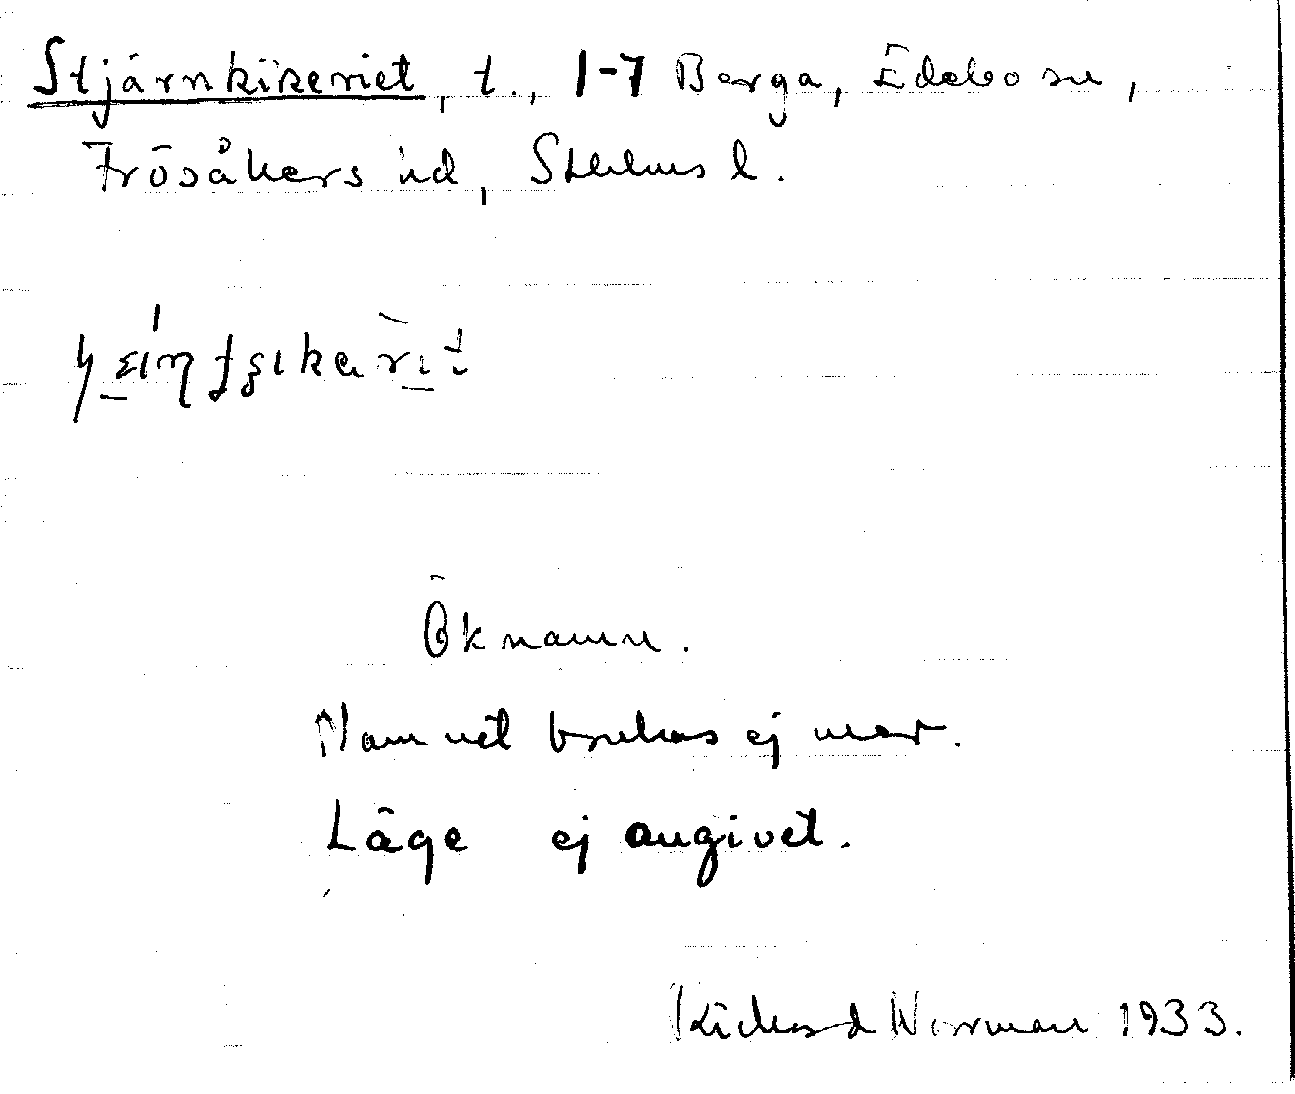 Stjärnkikeriet, t., 1-7 Berga, Edebo sn,
Frösåkers hd, Sthlms l.
Öknamn.
Namnet brukas ej mer.
Läge ej angivet.
Rickard Norrman 1933.